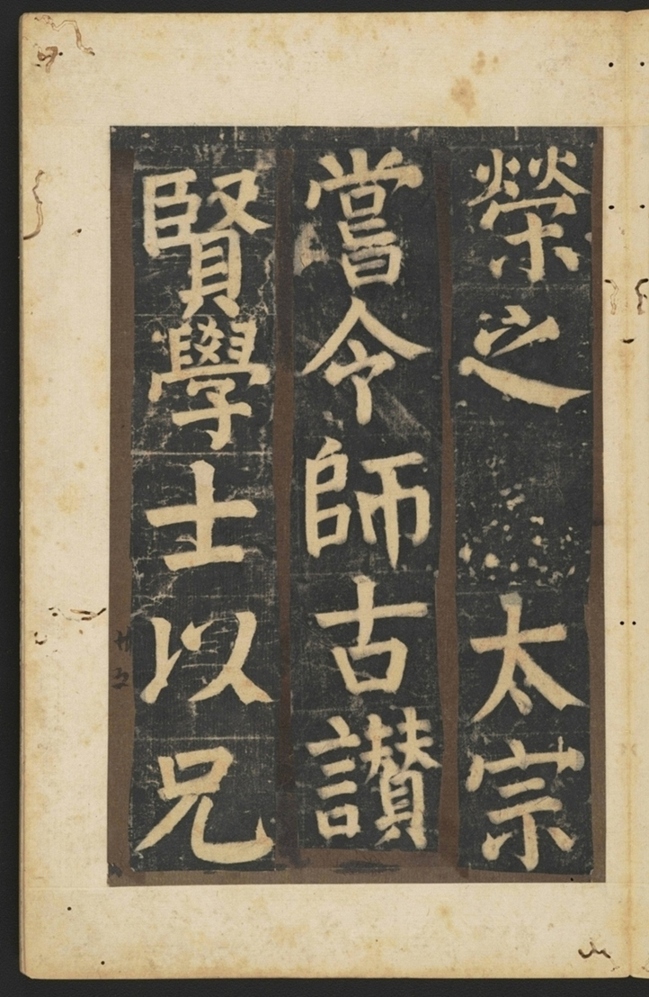 榮之太宗
嘗令師古讃
賢學士以兄